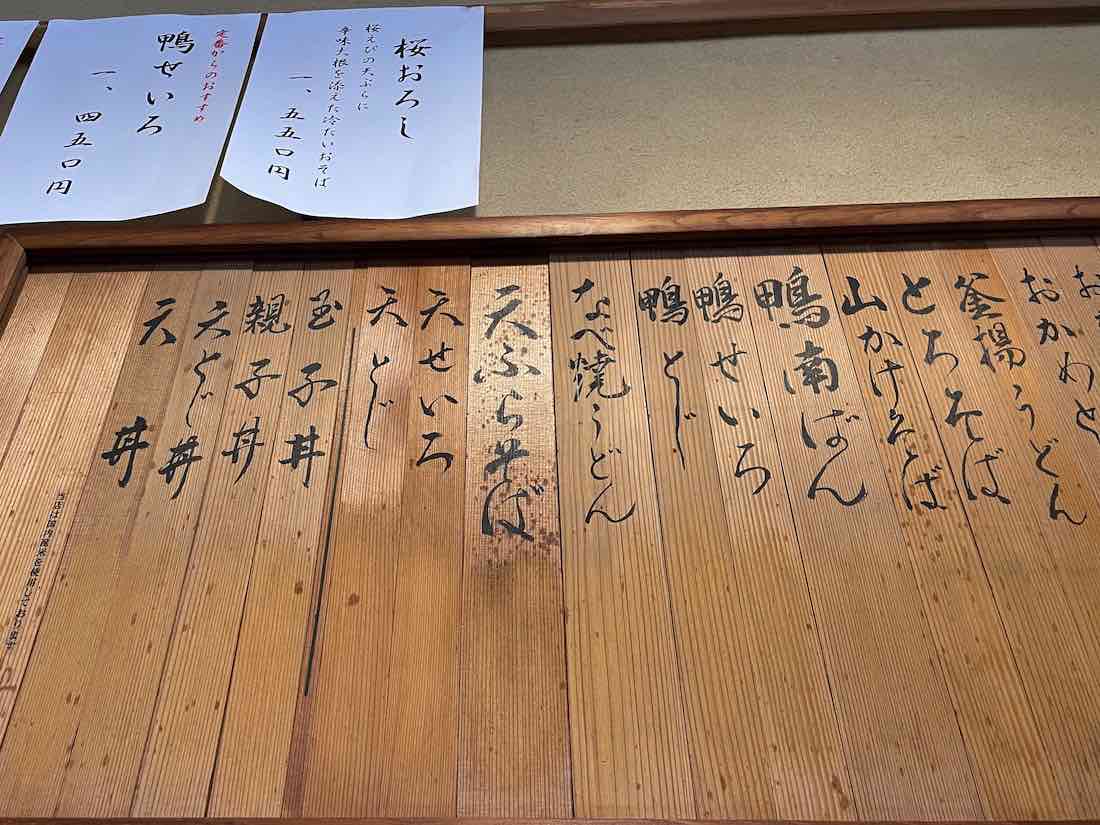 桜おろし
桜えびの天ぷらに
辛味大根を添えた冷たいおそば
一、五五〇円
定番からのおすすめ
鴨せいろ
一、四五〇円
おかわと
おかめうどん
釜揚うどん
とろろそば
山かけそば
鴨南ばん
鴨せいろ
鴨とじ
なべ焼うどん
天ぷらそば
天せいろ
天とじ
玉子丼
親子丼
天とじ丼
天丼
当店は国内産米を使用しております